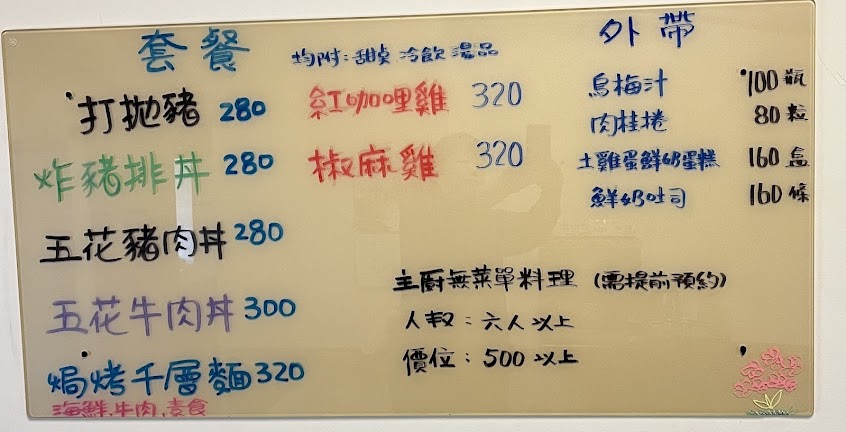 套餐 均附：甜点 冷飲 湯品
打拋豬 280
炸豬排丼 280
五花豬肉丼 280
五花牛肉丼 300
焗烤千層麵 320
海鮮.牛肉.素食
紅咖哩雞 320
椒麻雞 320
外帶
烏梅汁 100 瓶
肉桂捲 80 粒
土雞蛋鮮奶蛋糕 160 盒
鮮奶吐司 160 條
主廚無菜單料理 (需提前預約)
人數：六人以上
價位：500 以上